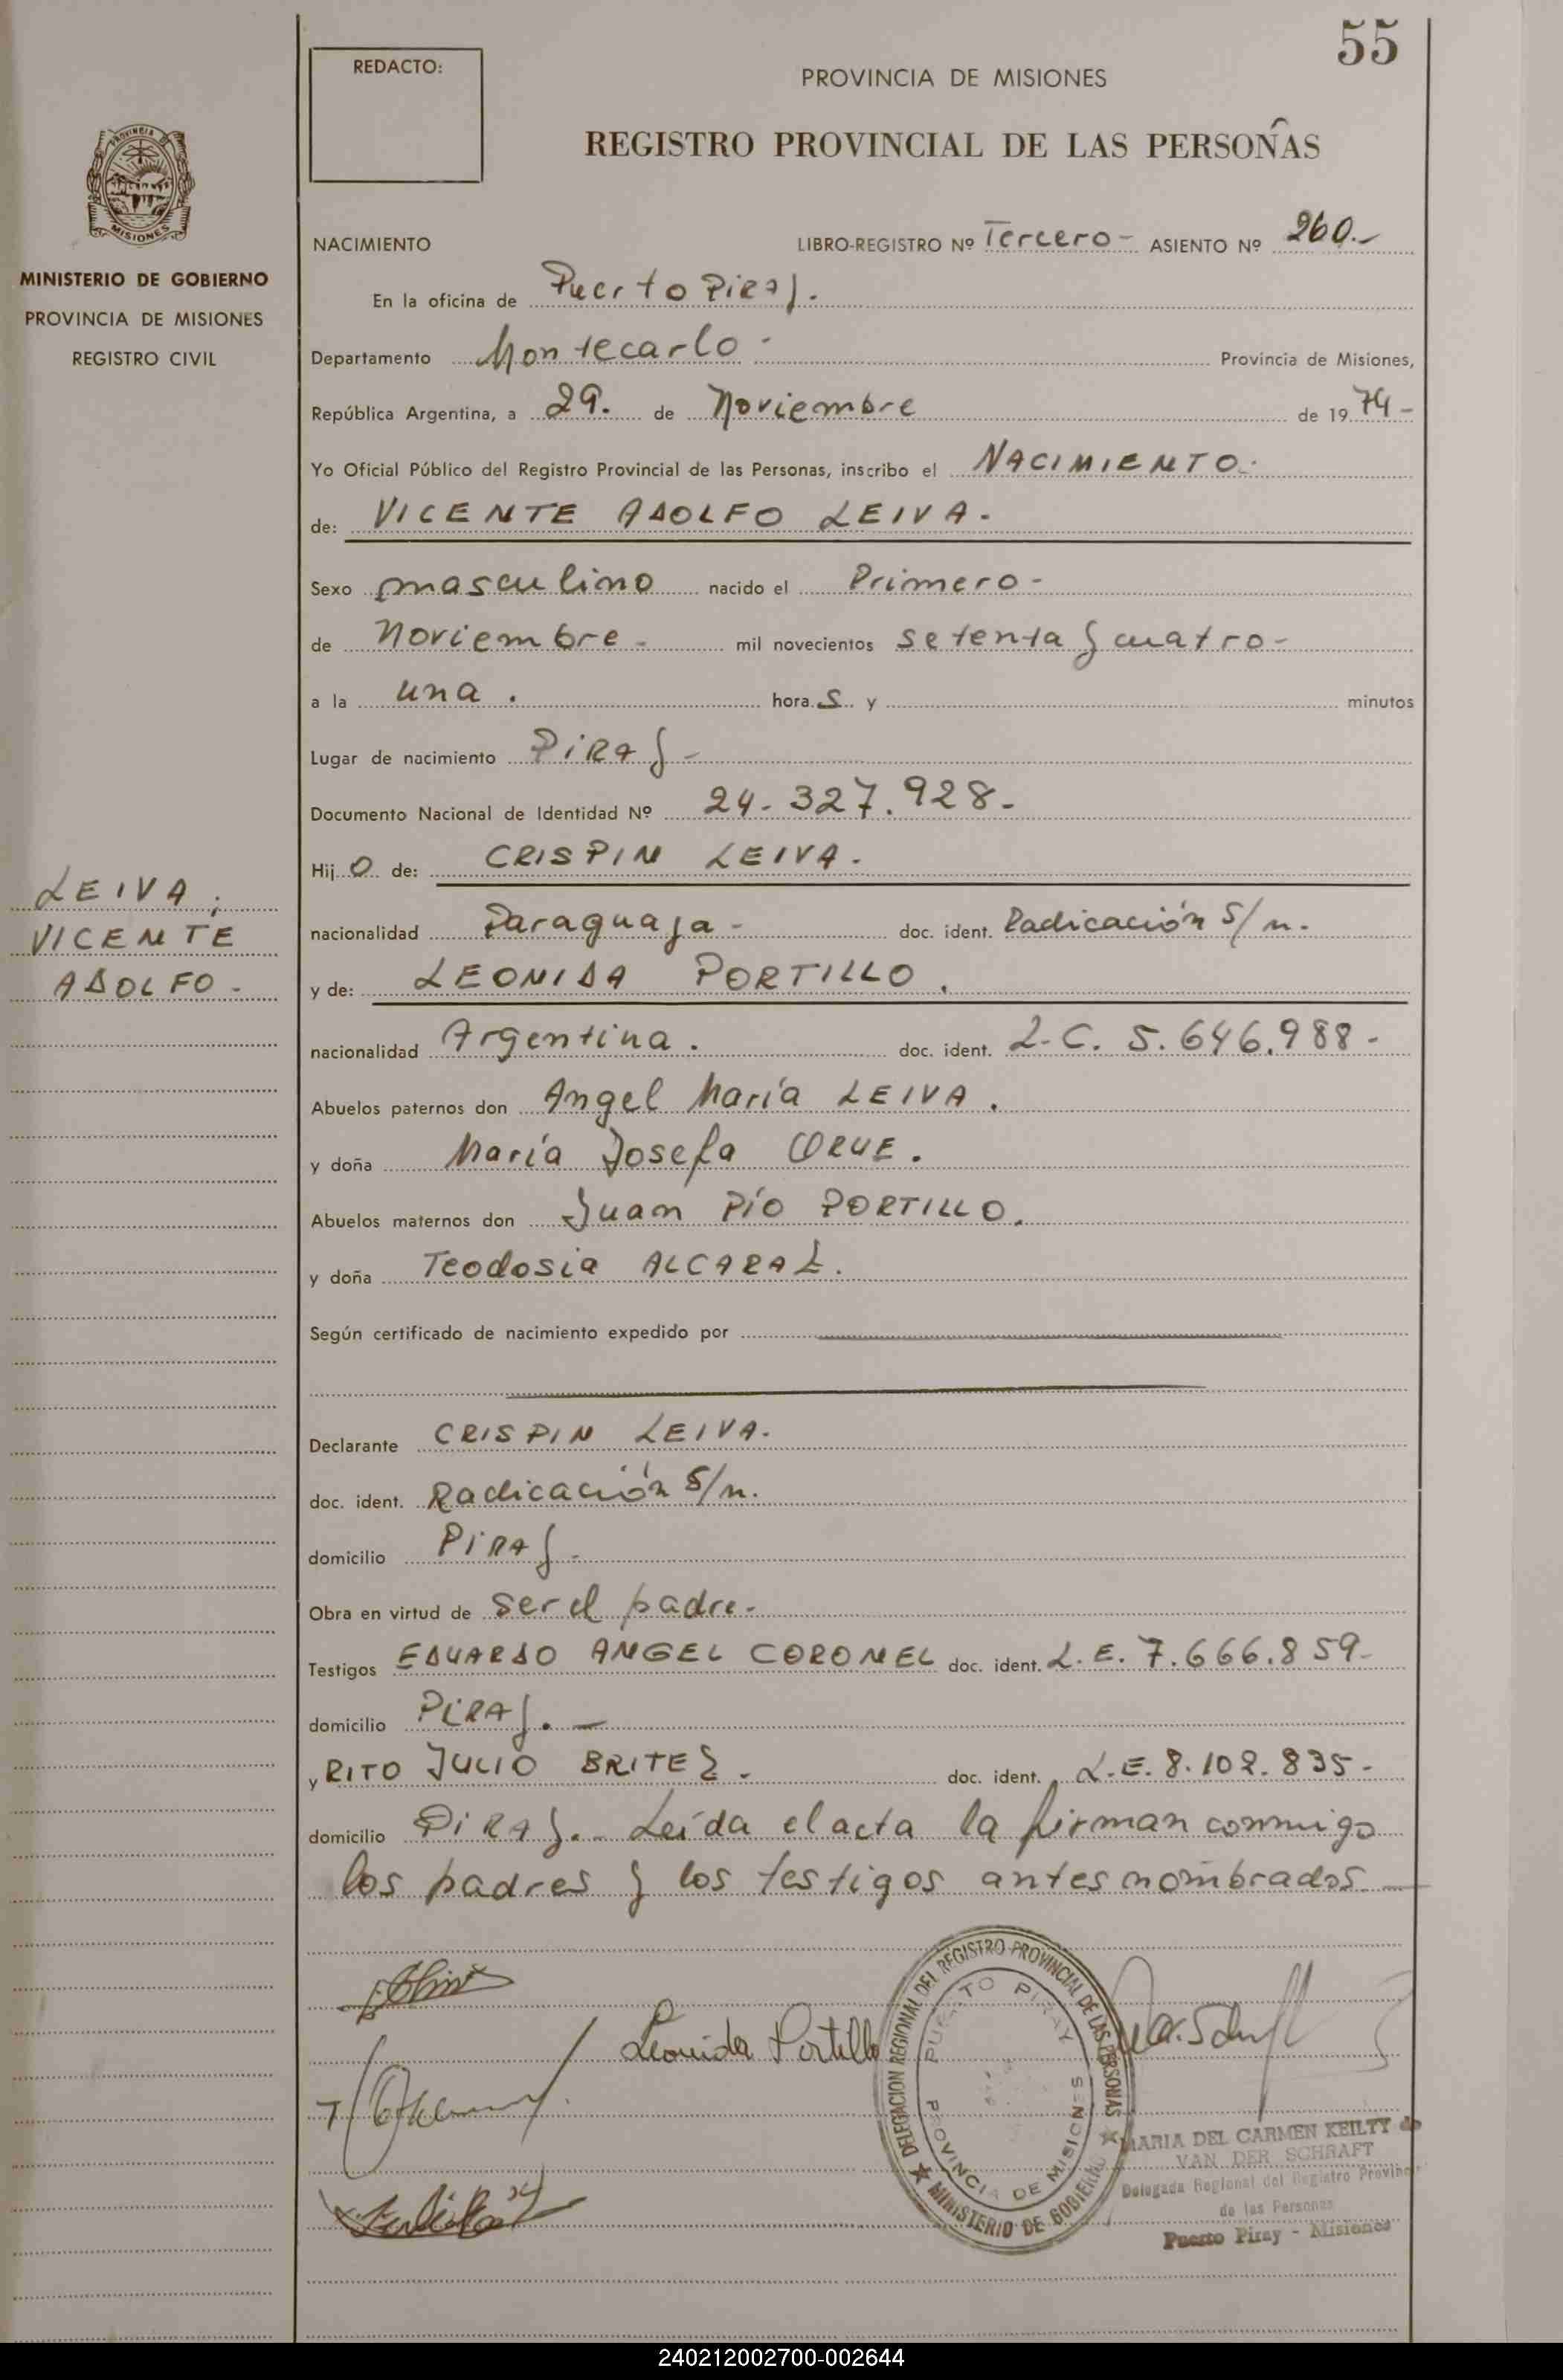 55
REDACTO:
PROVINCIA DE MISIONES
REGISTRO PROVINCIAL DE LAS PERSONAS
PROVINCIA
MISIONES
MINISTERIO DE GOBIERNO
PROVINCIA DE MISIONES
REGISTRO CIVIL
NACIMIENTO LIBRO-REGISTRO Nº Tercero- ASIENTO Nº 260.-
En la oficina de Puerto Piray.
Departamento Montecarlo - Provincia de Misiones,
República Argentina, a 29. de Noviembre de 19 74-
Yo Oficial Público del Registro Provincial de las Personas, inscribo el NACIMIENTO.
de: VICENTE ADOLFO LEIVA.
Sexo masculino nacido el Primero-
de Noviembre - mil novecientos setenta y cuatro-
a la una . hora s y minutos
Lugar de nacimiento Piray -
Documento Nacional de Identidad Nº 24.327.928-
Hij o de: CRISPIN LEIVA.
nacionalidad Paraguaya - doc. ident. Radicación s/n.
y de: LEONIDA PORTILLO.
nacionalidad Argentina. doc. ident. L.C. 5.646.988-
Abuelos paternos don Angel María LEIVA.
y doña María Josefa ORUE.
Abuelos maternos don Juan Pío PORTILLO.
y doña Teodosia ALCARAZ.
Según certificado de nacimiento expedido por
Declarante CRISPIN LEIVA.
doc. ident. Radicación s/n.
domicilio Piray -
Obra en virtud de ser el padre-
Testigos EDUARDO ANGEL CORONEL doc. ident. L.E. 7.666.859-
domicilio Piray. -
y RITO JULIO BRITEZ. doc. ident. L.E. 8.102.835-
domicilio Piray.- Leída el acta la firman conmigo
los padres y los testigos antes nombrados -
LEIVA,
VICENTE
ADOLFO -
Leonida Portillo
DELEGACION REGIONAL DEL REGISTRO PROVINCIAL DE LAS PERSONAS
MINISTERIO DE GOBIERNO
PUERTO PIRAY
PROVINCIA DE MISIONES
MARIA DEL CARMEN KEILTY de
VAN DER SCHRAFT
Delegada Regional del Registro Provincial
de las Personas
Puerto Piray - Misiones
240212002700-002644